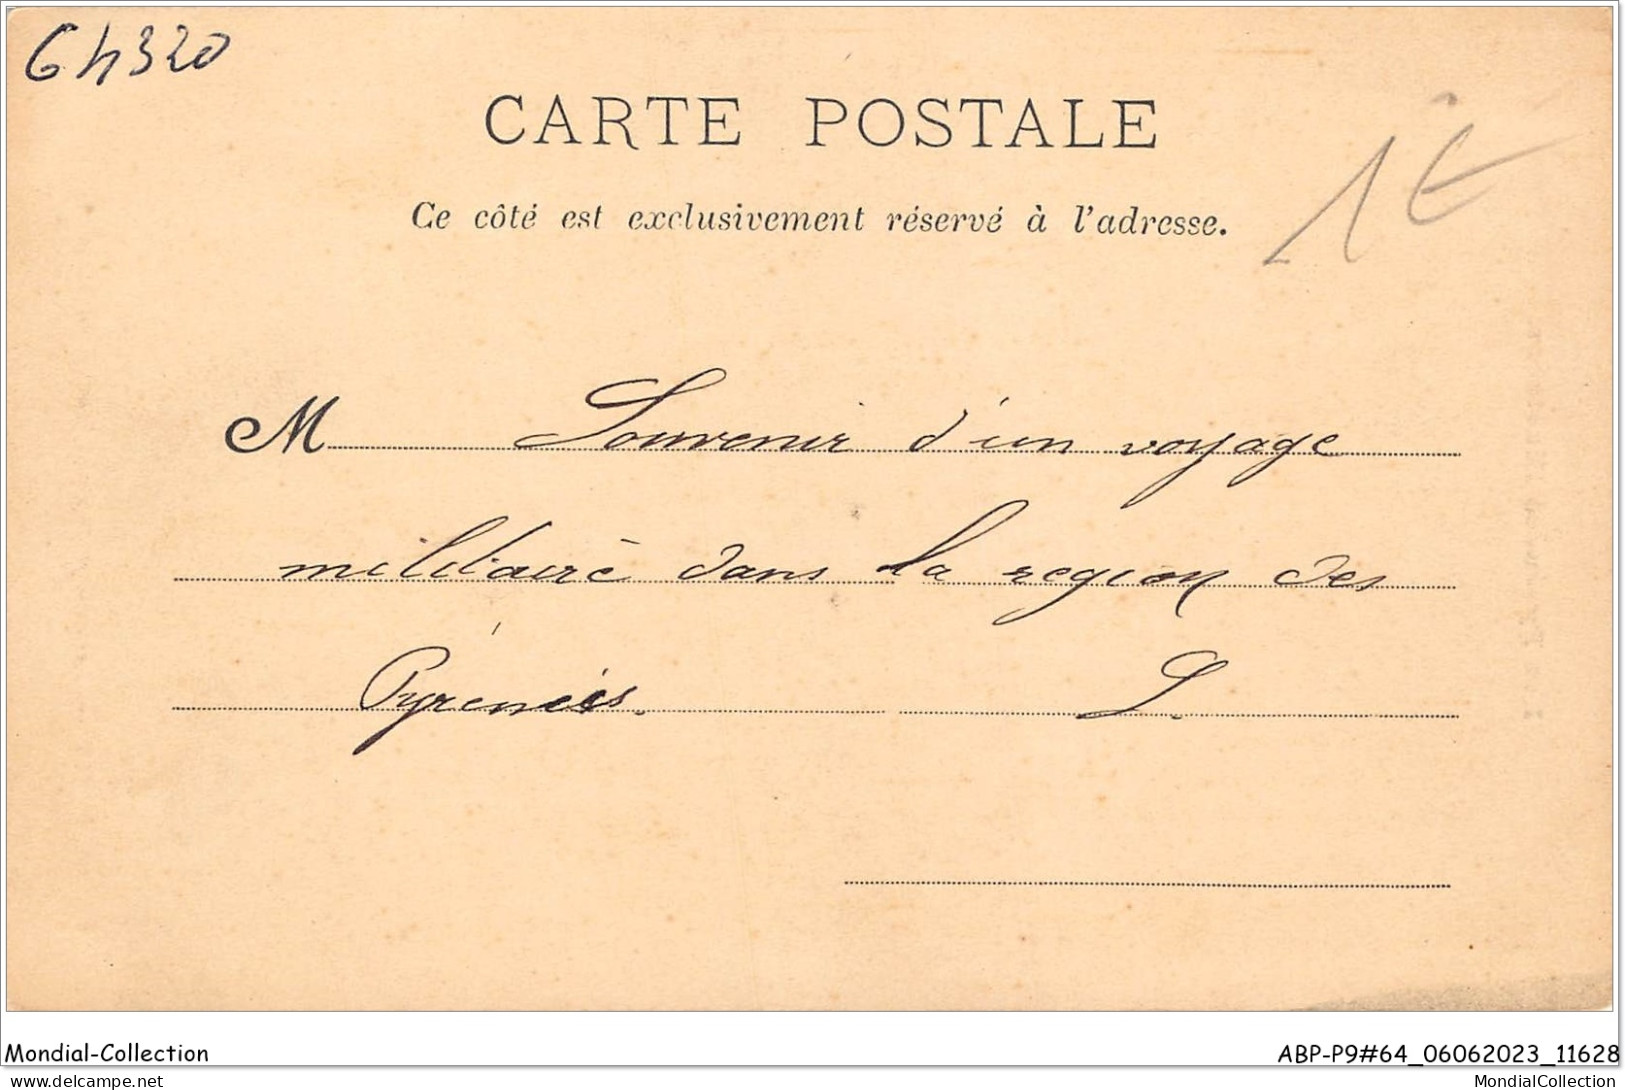 64320
CARTE POSTALE
1€
Ce côté est exclusivement réservé à l'adresse.
M Souvenir d'un voyage
militaire dans la region des
Pyrénées. L.
Mondial-Collection
ABP-P9#64_06062023_11628
www.delcampe.net
MondialCollection